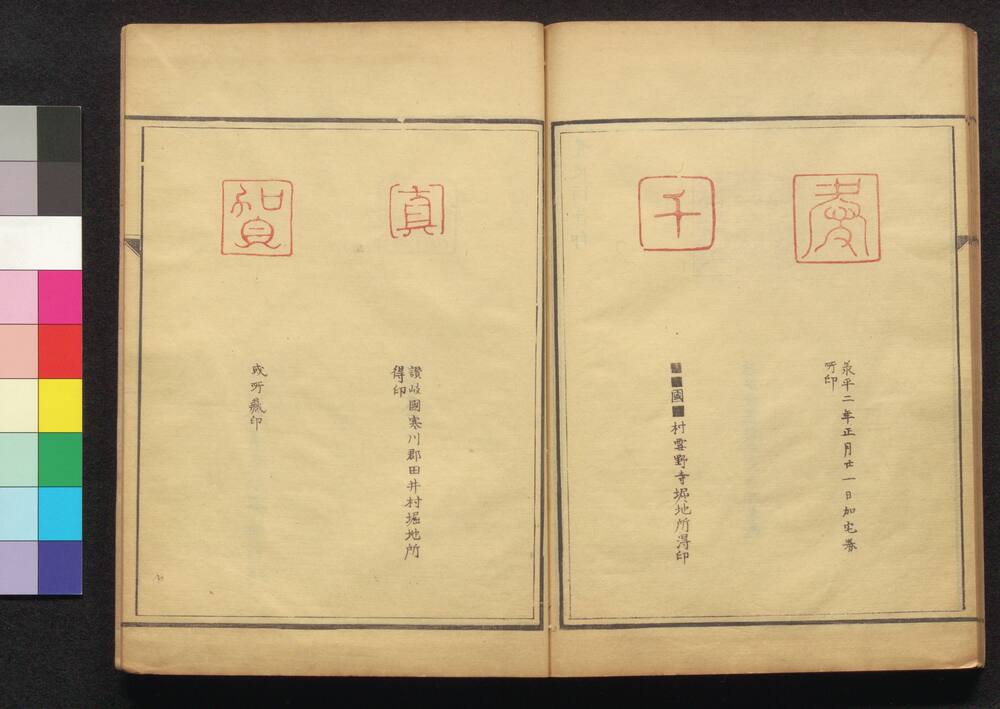 千
永平二年正月廿一日加宅券
所印
國
村雲野寺堀地所淂印
真
賀
讃岐國寒川郡田井村堀地所
得印
或所蔵印